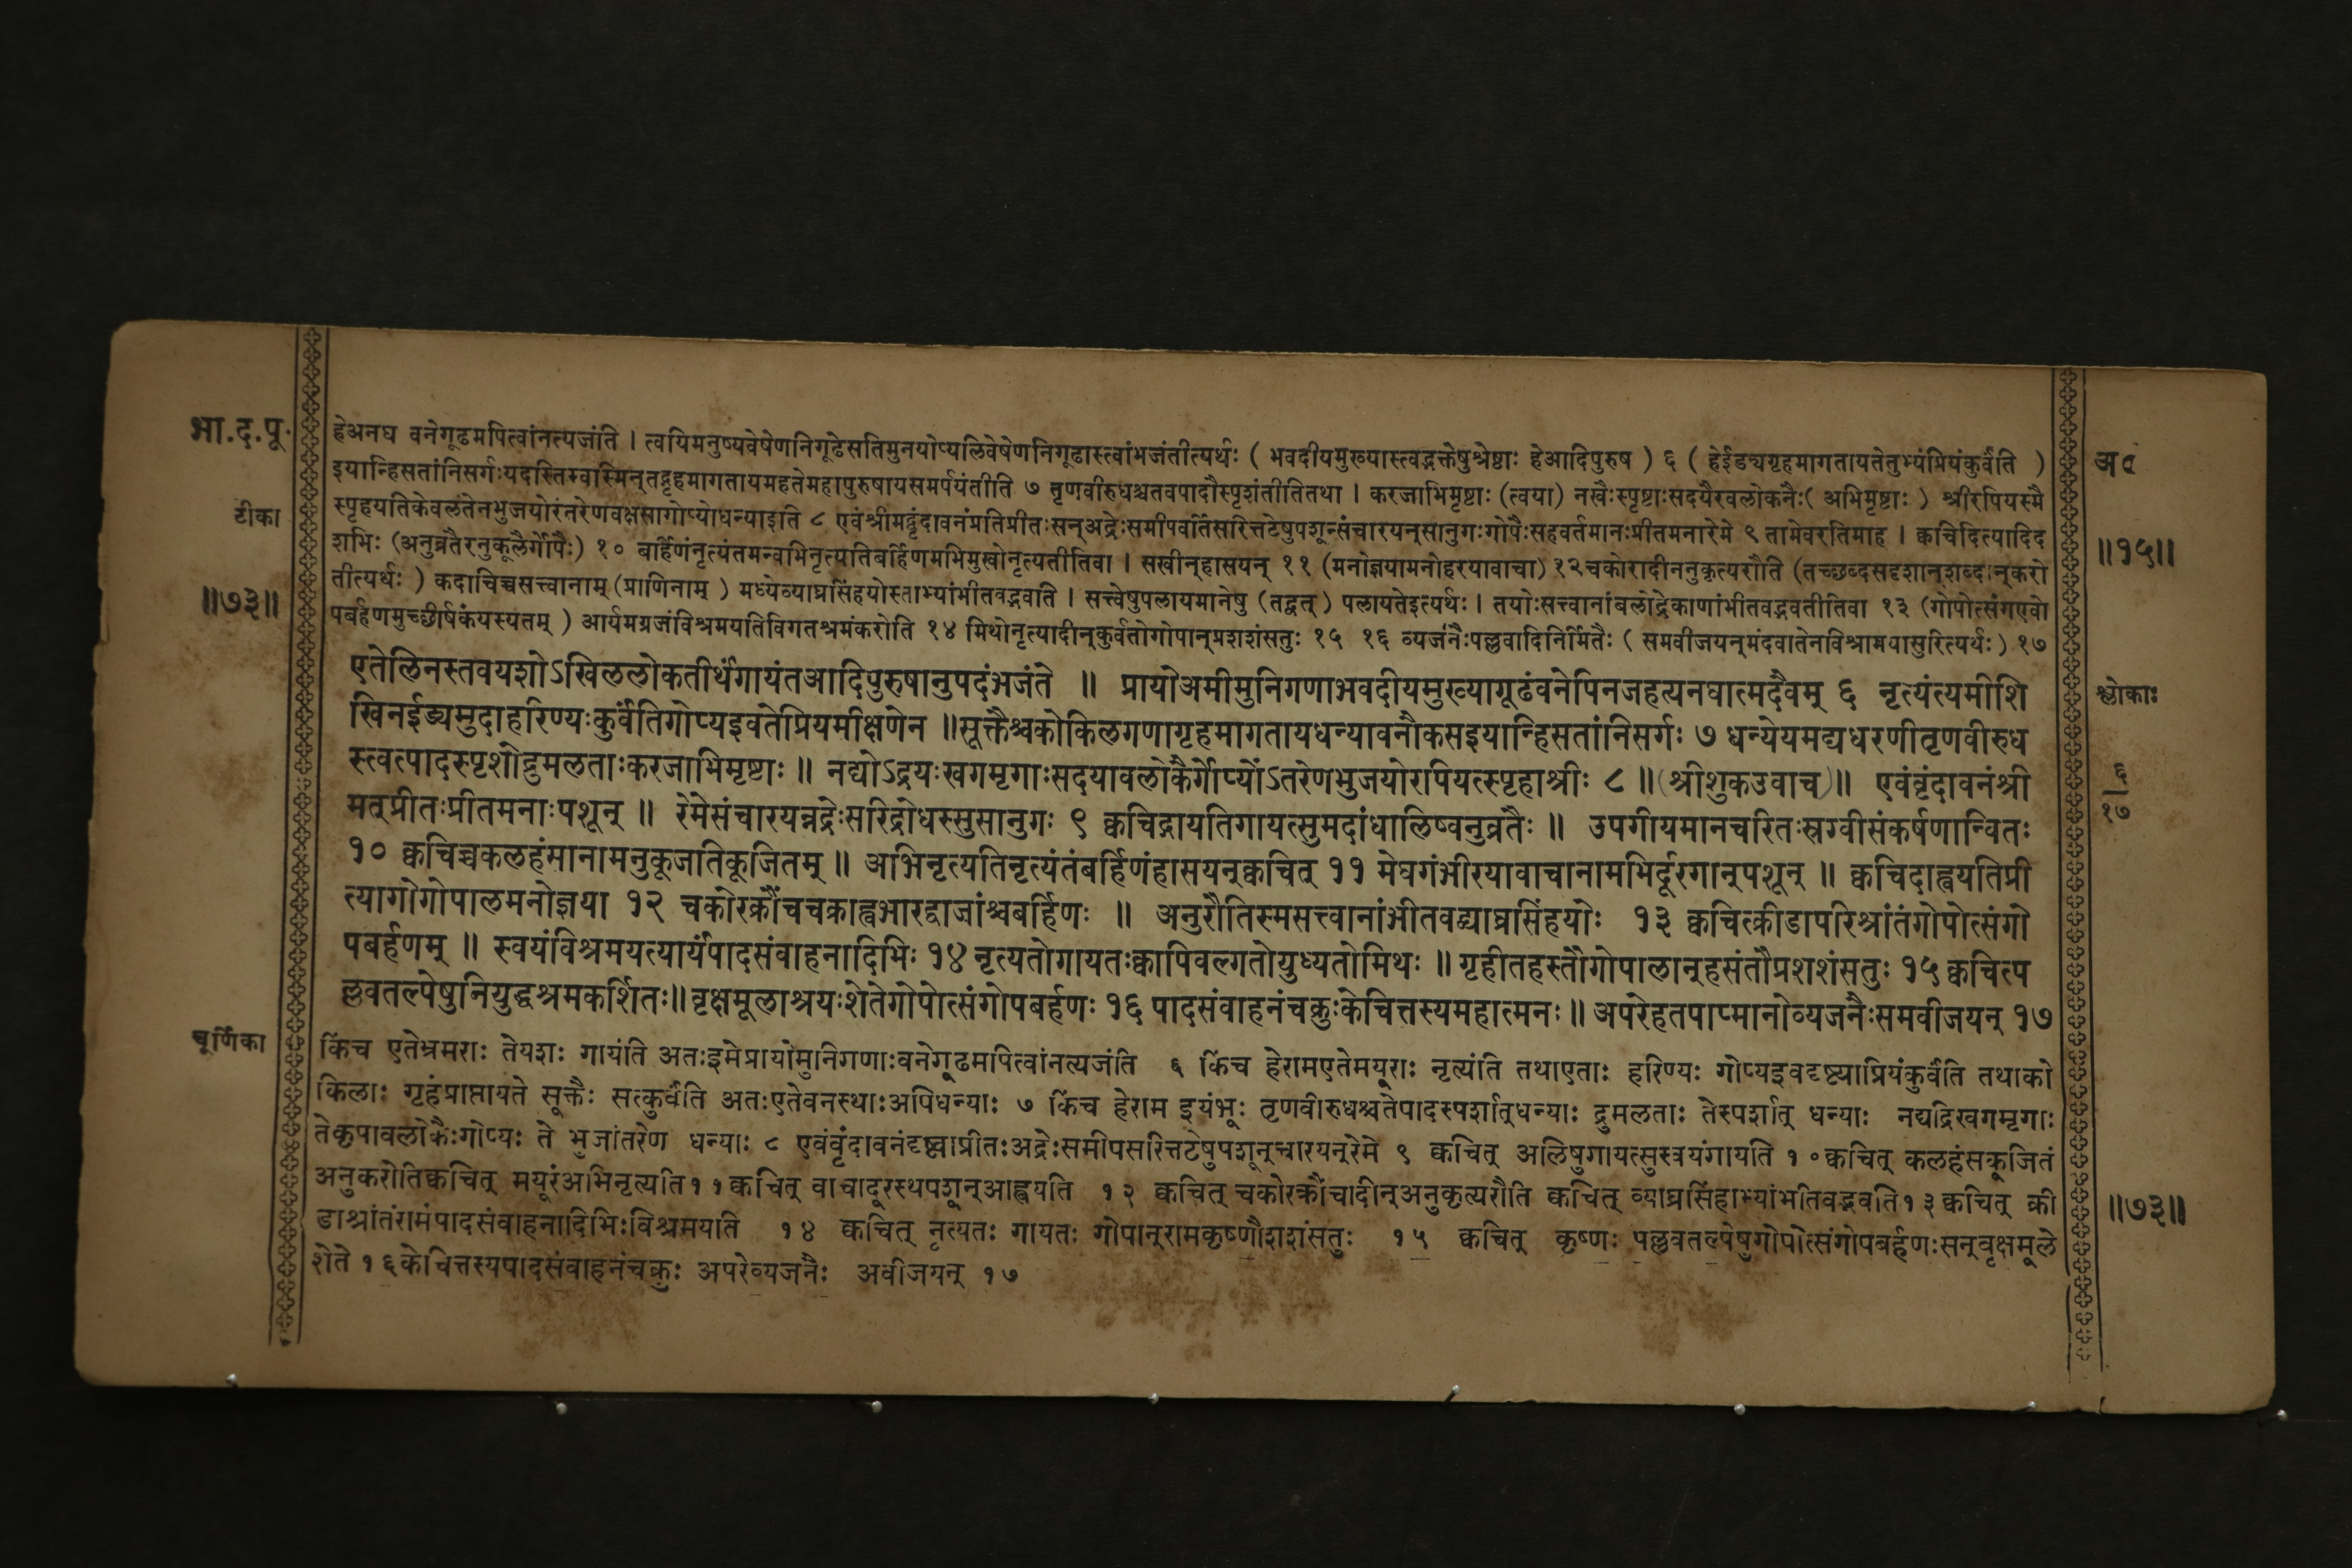 भा.द.पू.
टीका
॥७३॥
हेअनघ वनेगूढमपित्वांनत्यजंति । त्वयिमनुष्यवेषेणनिगूढेसतिमुनयोप्यलिवेषेणनिगूढास्त्वांभजंतीत्यर्थः ( भवदीयमुख्यास्त्वद्भक्तेषुश्रेष्ठाः हेआदिपुरुष ) ६ ( हेईड्यगृहमागतायतेतुभ्यंप्रियंकुर्वंति )
इयान्हिसतांनिसर्गःयदस्तिस्वस्मिन्तद्गृहमागतायमहतेमहापुरुषायसमर्पयंतीति ७ तृणवीरुधश्चतवपादौस्पृशंतीतितथा । करजाभिमृष्टाः (त्वया) नखैःस्पृष्टाःसदयैरवलोकनैः( अभिमृष्टाः ) श्रीरपियस्मै
स्पृहयतिकेवलंतेनभुजयोरंतरेणवक्षसागोप्योधन्याइति ८ एवंश्रीमद्वृंदावनंप्रतिप्रीतःसन्अद्रेःसमीपवर्तिसरित्तटेषुपशून्संचारयन्सानुगःगोपैःसहवर्तमानःप्रीतमनारेमे ९ तामेवरतिमाह । क्वचिदित्यादिद
शभिः (अनुव्रतैरनुकूलैर्गोपैः) १० बर्हिणंनृत्यंतमन्वभिनृत्यतिबर्हिणमभिमुखोनृत्यतीतिवा । सखीन्हासयन् ११ (मनोज्ञयामनोहरयावाचा) १२चकोरादीननुकृत्यरौति (तच्छब्दसदृशान्शब्दान्करो
तीत्यर्थः ) कदाचिच्चसत्त्वानाम् (प्राणिनाम् ) मध्येव्याघ्रसिंहयोस्ताभ्यांभीतवद्भवति । सत्त्वेषुपलायमानेषु (तद्वत् ) पलायतेइत्यर्थः । तयोःसत्त्वानांबलोद्रेकाणांभीतवद्भवतीतिवा १३ (गोपोत्संगएवो
पबर्हणमुच्छीर्षकंयस्यतम् ) आर्यमग्रजंविश्रमयतिविगतश्रमंकरोति १४ मिथोनृत्यादीन्कुर्वतोगोपान्प्रशशंसतुः १५ १६ व्यजनैःपल्लवादिनिर्मितैः ( समवीजयन्मंदवातेनविश्रामयासुरित्यर्थः ) १७
एतेलिनस्तवयशोऽखिललोकतीर्थंगायंतआदिपुरुषानुपदंभजंते ॥ प्रायोअमीमुनिगणाभवदीयमुख्यागूढंवनेपिनजहत्यनघात्मदैवम् ६ नृत्यंत्यमीशि
खिनईड्यमुदाहरिण्यःकुर्वंतिगोप्यइवतेप्रियमीक्षणेन ॥सूक्तैश्चकोकिलगणागृहमागतायधन्यावनौकसइयान्हिसतांनिसर्गः ७ धन्येयमद्यधरणीतृणवीरुध
स्त्वत्पादस्पृशोद्रुमलताःकरजाभिमृष्टाः ॥ नद्योऽद्रयःखगमृगाःसदयावलोकैर्गोप्योंऽतरेणभुजयोरपियत्स्पृहाश्रीः ८ ॥(श्रीशुकउवाच)॥ एवंवृंदावनंश्री
मत्प्रीतःप्रीतमनाःपशून् ॥ रेमेसंचारयन्नद्रेःसरिद्रोधस्सुसानुगः ९ क्वचिद्गायतिगायत्सुमदांधालिष्वनुव्रतैः ॥ उपगीयमानचरितःस्रग्वीसंकर्षणान्वितः
१० क्वचिच्चकलहंमानामनुकूजातिकूजितम् ॥ अभिनृत्यतिनृत्यंतंबर्हिणंहासयन्क्वचित् ११ मेघगंभीरयावाचानामभिर्दूरगान्पशून् ॥ क्वचिदाह्वयतिप्री
त्यागोगोपालमनोज्ञया १२ चकोरक्रौंचचक्राह्वभारद्वाजांश्चबर्हिणः ॥ अनुरौतिस्मसत्त्वानांभीतवद्व्याघ्रसिंहयोः १३ क्वचित्क्रीडापरिश्रांतंगोपोत्संगो
पबर्हणम् ॥ स्वयंविश्रमयत्यार्यंपादसंवाहनादिभिः १४ नृत्यतोगायतःक्वापिवल्गतोयुध्यतोमिथः ॥ गृहीतहस्तौगोपालान्हसंतौप्रशशंसतुः १५ क्वचित्प
ल्लवतल्पेषुनियुद्धश्रमकर्शितः॥ वृक्षमूलाश्रयःशेतेगोपोत्संगोपबर्हणः १६ पादसंवाहनंचक्रुःकेचित्तस्यमहात्मनः ॥ अपरेहतपाप्मानोव्यजनैःसमवीजयन् १७
चूर्णिका
किंच एतेभ्रमराः तेयशः गायंति अतःइमेप्रायोमुनिगणाःवनेगूढमपित्वांनत्यजंति ६ किंच हेरामएतेमयूराः नृत्यंति तथाएताः हरिण्यः गोप्यइवदृष्ट्याप्रियंकुर्वंति तथाको
किलाः गृहंप्राप्तायते सूक्तैः सत्कुर्वंति अतःएतेवनस्थाःअपिधन्याः ७ किंच हेराम इयंभूः तृणवीरुधश्चतेपादस्पर्शात्धन्याः द्रुमलताः तेस्पर्शात् धन्याः नद्यद्रिखगमृगाः
तेकृपावलोकैःगोप्यः ते भुजांतरेण धन्याः ८ एवंवृंदावनंदृष्ट्वाप्रीतःअद्रेःसमीपसरित्तटेषुपशून्चारयन्रेमे ९ क्वचित् अलिषुगायत्सुस्वयंगायति १०क्वचित् कलहंसकूजितं
अनुकरोतिक्वचित् मयूरंअभिनृत्यति११क्वचित् वाचादूरस्थपशून्आह्वयति १२ क्वचित् चकोरक्रौंचादीन्अनुकृत्यरौति क्वचित् व्याघ्रसिंहाभ्यांभतिवद्भवति१३क्वचित् क्री
डाश्रांतंरामंपादसंवाहनादिभिःविश्रमयाति १४ क्वचित् नृत्यतः गायतः गोपान्रामकृष्णौशशंसतुः १५ क्वचित् कृष्णः पल्लवतल्पेषुगोपोत्संगोपबर्हणःसन्वृक्षमूले
शेते १६केचित्तस्यपादसंवाहनंचक्रुः अपरेव्यजनैः अवीजयन् १७
अ०
॥१५॥
श्लोकाः
६
१७
॥७३॥